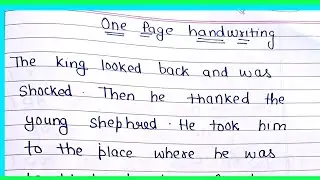 One Page handwriting
The king looked back and was
Shocked. Then he thanked the
young shephred. He took him
to the place where he was